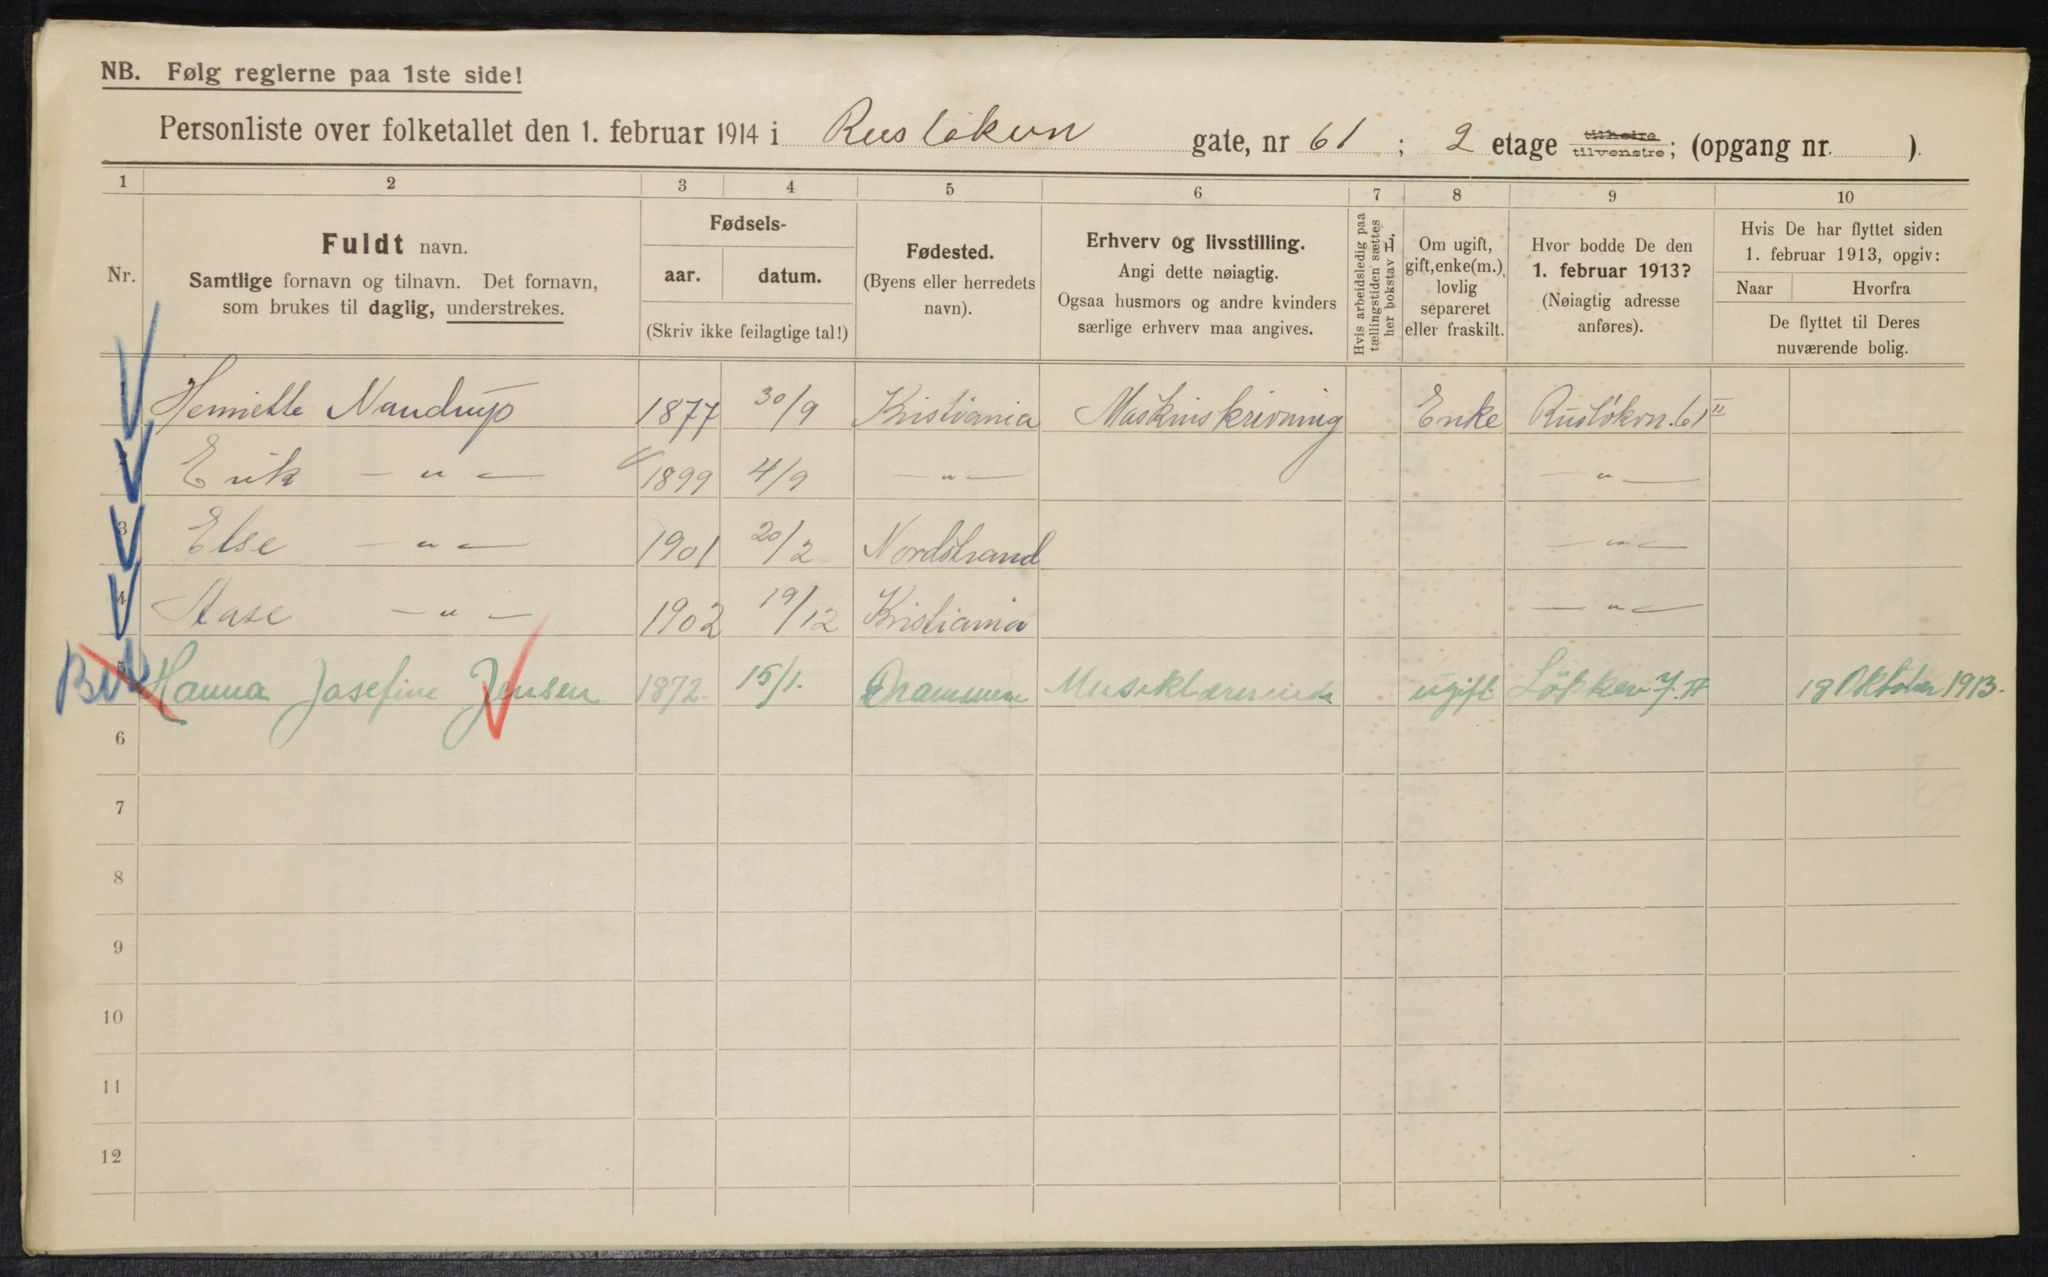 NB. Følg reglerne paa 1ste side!
Personliste over folketallet den 1. februar 1914 i Rusløkvn gate, nr 61 ; 2 etage tilhøire tilvenstre; (opgang nr. ).
1 2 3 4 5 6 7 8 9 10
Nr.
Fuldt navn.
Samtlige fornavn og tilnavn. Det fornavn,
som brukes til daglig, understrekes.
Fødsels-
aar. datum.
(Skriv ikke feilagtige tal!)
Fødested.
(Byens eller herredets
navn).
Erhverv og livsstilling.
Angi dette nøiagtig.
Ogsaa husmors og andre kvinders
særlige erhverv maa angives.
Hvis arbeidsledig paa
tællingstiden sættes
her bokstav L.
Om ugift,
gift, enke(m.),
lovlig
separeret
eller fraskilt.
Hvor bodde De den
1. februar 1913?
(Nøiagtig adresse
anføres).
Hvis De har flyttet siden
1. februar 1913, opgiv:
Naar Hvorfra
De flyttet til Deres
nuværende bolig.
1 Henriette Naudrup 1877 30/9 Kristiania Maskinskrivning Enke Rusløkvn. 61 II
2 Erik — " — 1899 4/9 — " — — " —
3 Else — " — 1901 20/2 Nordstrand — " —
4 Aase — " — 1902 19/12 Kristiania — " —
5 Hanna Josefine Jensen 1872. 15/1. Drammen Musiklærerinde ugift Løkken 7. II 18 Oktober 1913.
6
7
8
9
10
11
12